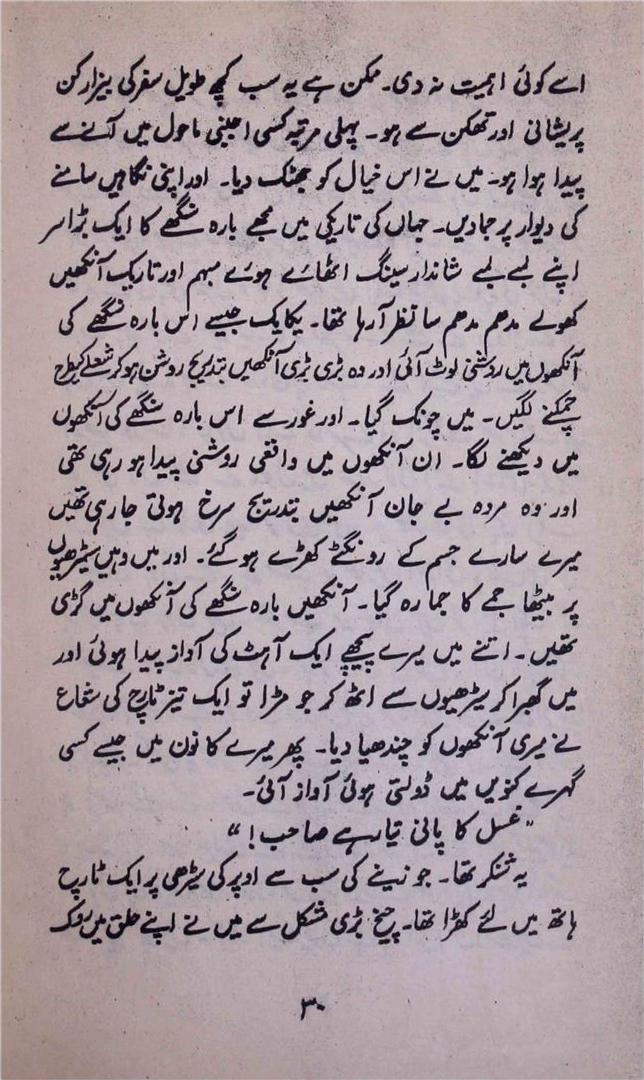 اسے کوئی اہمیت نہ دی۔ ممکن ہے یہ سب کچھ طویل سفر کی بیزار کن
پریشانی اور تھکن سے ہو۔ پہلی مرتبہ کسی اجنبی ماحول میں آنے سے
پیدا ہوا ہو۔ میں نے اس خیال کو جھٹک دیا۔ اور اپنی نگاہیں سامنے
کی دیوار پر جمادیں۔ جہاں کی تاریکی میں مجھے بارہ سنگھے کا ایک بڑا سر
اپنے لمبے لمبے شاندار سینگ اٹھائے ہوئے مبہم اور تاریک آنکھیں
کھولے مدھم مدھم سا نظر آرہا تھا۔ یکایک جیسے اس بارہ سنگھے کی
آنکھوں میں روشنی لوٹ آئی اور وہ بڑی بڑی آنکھیں بتدریج روشن ہو کر شعلے کیطرح
چمکنے لگیں۔ میں چونک گیا۔ اور غور سے اس بارہ سنگھے کی آنکھوں
میں دیکھنے لگا۔ ان آنکھوں میں واقعی روشنی پیدا ہو رہی تھی
اور وہ مردہ بے جان آنکھیں بتدریج سرخ ہوتی جارہی تھیں
میرے سارے جسم کے رونگٹے کھڑے ہو گئے۔ اور میں وہیں سیڑھیوں
پر بیٹھا جمے کا جما رہ گیا۔ آنکھیں بارہ سنگھے کی آنکھوں میں گڑی
تھیں۔ اتنے میں میرے پیچھے ایک آہٹ کی آواز پیدا ہوئی اور
میں گھبرا کر سیڑھیوں سے اٹھ کر جو مڑا تو ایک تیز ٹارچ کی شعاع
نے میری آنکھوں کو چندھیا دیا۔ پھر میرے کانوں میں جیسے کسی
گہرے کنویں میں ڈولتی ہوئی آواز آئی۔
"غسل کا پانی تیار ہے صاحب!"
یہ شنکر تھا۔ جو زینے کی سب سے اوپر کی سیڑھی پر ایک ٹارچ
ہاتھ میں لئے کھڑا تھا۔ چیخ بڑی مشکل سے میں نے اپنے حلق میں روک
۳۰